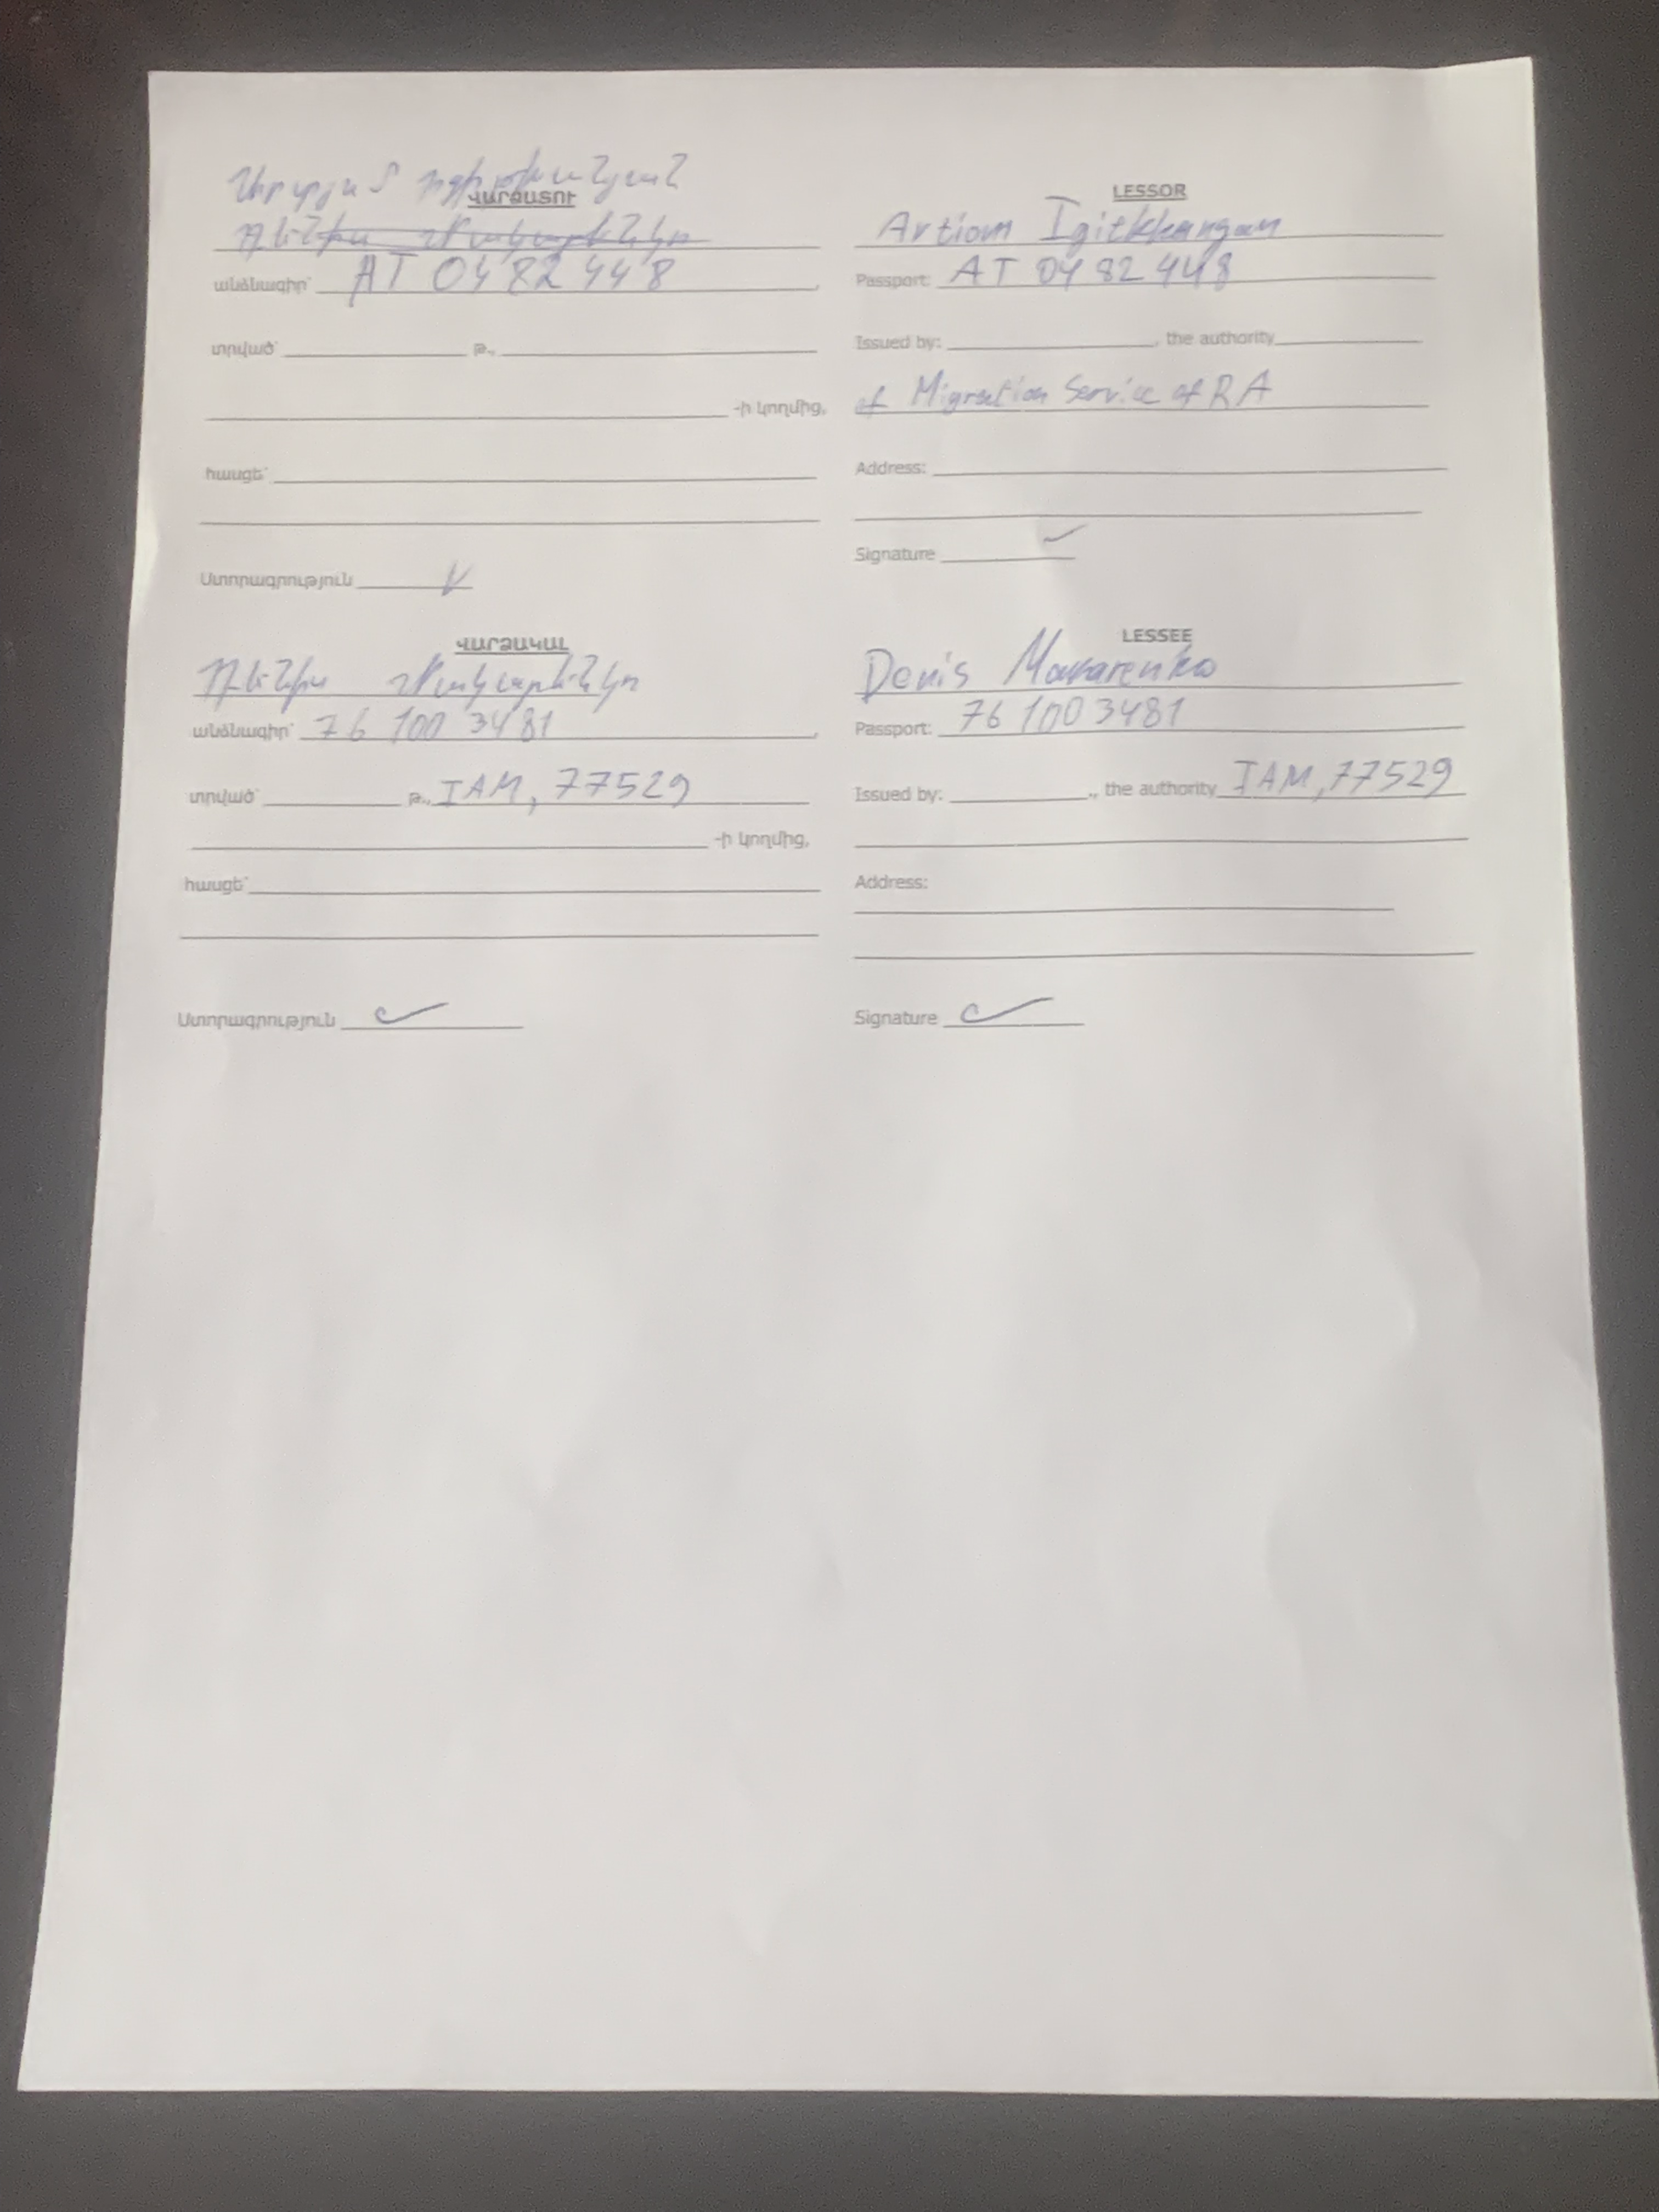 Արտյոմ Իգիթխանյան
ՎԱՐՁԱՏՈՒ
Դենիս Մակարենկո
անձնագիր՝ AT 0482448,
տրված՝ թ.,
-ի կողմից,
հասցե՝
Ստորագրություն
LESSOR
Artiom Igitkhangan
Passport: AT 0482448
Issued by: , the authority
of Migration Service of RA
Address:
Signature
ՎԱՐՁԱԿԱԼ
Դենիս Մակարենկո
անձնագիր՝ 76 100 3481,
տրված՝ թ., IAM, 77529
-ի կողմից,
հասցե՝
Ստորագրություն
LESSEE
Denis Makarenko
Passport: 76 100 3481
Issued by: ., the authority IAM, 77529
Address:
Signature